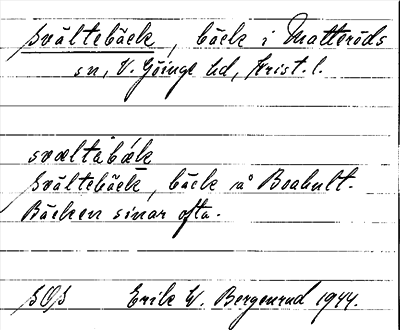 Svältebäck, bäck i Matteröds
sn, V. Göinge hd, Krist. l.
svæltabæk
Svältebäck, bäck å Boahult.
Bäcken sinar ofta.
SOS Erik W. Bergenrud 1944.